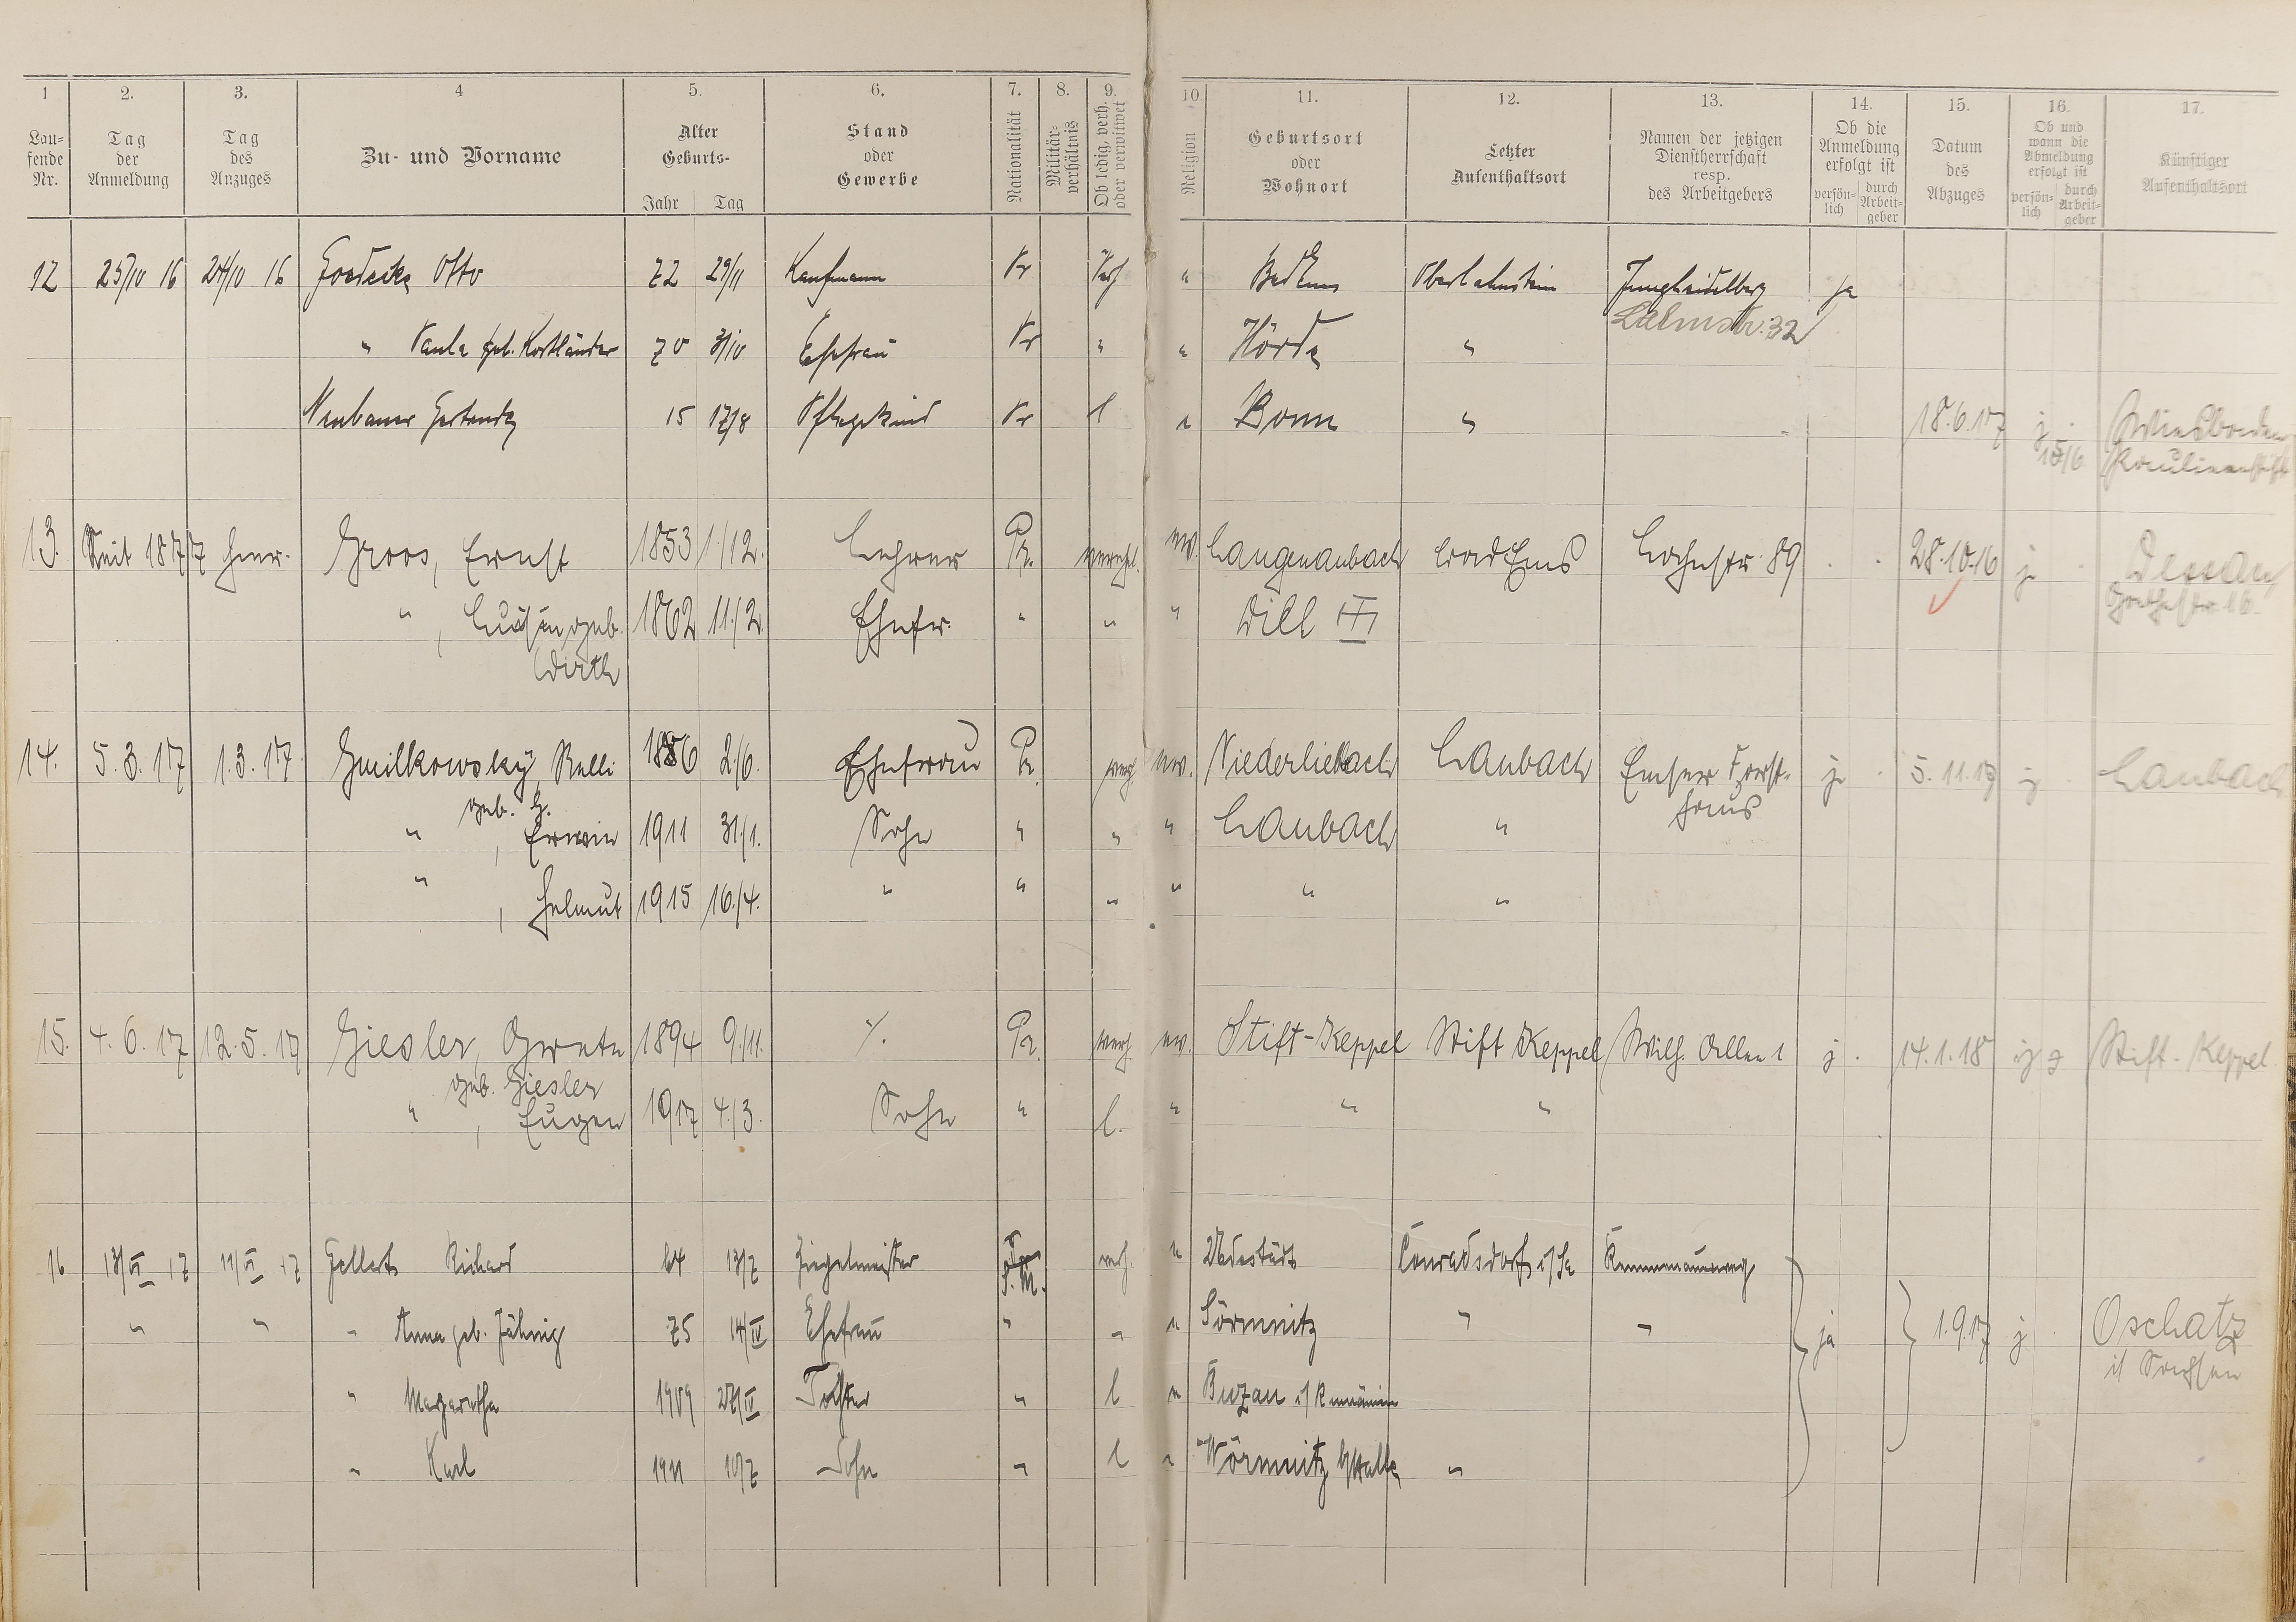 1 2. 3. 4 5. 6. 7. 8. 9. 10 11. 12. 13. 14. 15. 16. 17.
Lau-
fende
Nr.
Tag
der
Anmeldung
Tag
des
Anzuges
Zu- und Vorname
Alter
Geburts-
Jahr Tag
Stand
oder
Gewerbe
Nationalität
Militär-
verhältnis
Ob ledig, verh.
oder verwitwet
Religion
Geburtsort
oder
Wohnort
Letzter
Aufenthaltsort
Namen der jetzigen
Dienstherrschaft
resp.
des Arbeitgebers
Ob die
Anmeldung
erfolgt ist
persön-
lich
durch
Arbeit-
geber
Datum
des
Abzuges
Ob und
wann die
Abmeldung
erfolgt ist
persön-
lich
durch
Arbeit-
geber
Künftiger
Aufenthaltsort
12 25/10 16 24/10 16 Goedecke Otto 72 29/11 Kaufmann Pr Verh " Bad Ems Oberlahnstein Jungheidelberg ja
Lahnstr. 32
" Paula geb. Kortländer 70 3/10 Ehefrau Pr " " Hörde "
Neubauer Gertrude 15 17/8 Pflegekind Pr l " Bonn " 18.6.17 j. Wiesbaden
18/6 Paulinenstift
13. Seit 1877 hier. Groos, Ernst 1853 1./12. Lehrer Pr. verehel. ev. Langenaubach Bad Ems Lahnstr. 89 28.10.16 j. Dessau
" , Luise geb. 1862 11./2. Ehefr. " " " Dill Goethestr. 16.
Wirth
14. 5.3.17 1.3.17 Gmilkowsky, Relli 1886 2./6. Ehefrau Pr. verh. ev. Niederliebach Laubach Emser Forst- j. 5.11.17 j Laubach
geb. G. haus
" , Erwin 1911 31./1. Sohn " " " Laubach "
" , Helmut 1915 16./4. " " " " " "
15. 4.6.17 12.5.17 Giesler, Grete 1894 9./11. ⁒ Pr. verh. ev. Stift-Keppel Stift Keppel Wilh. Allee 1 j. 14.1.18 Stift-Keppel
geb. Giesler
" , Eugen 1917 4./3. Sohn " l. " " "
16 13/VI 17 11/VI 17 Gellert Richard 64 13/7 Ziegelmeister verh. " Conradsdorf i/Sa Kemmenauerweg
" " " Anna geb. Jähnig 75 14/IV Ehefrau " " " Sörmnitz " " ja 1.9.17 j Oschatz
i/ Sachsen
" Margarethe 1909 27/IV Tochter " l " Buzau i/ Rumänien
" Karl 1911 10/7 Sohn " l " Wörmnitz b/Halle "